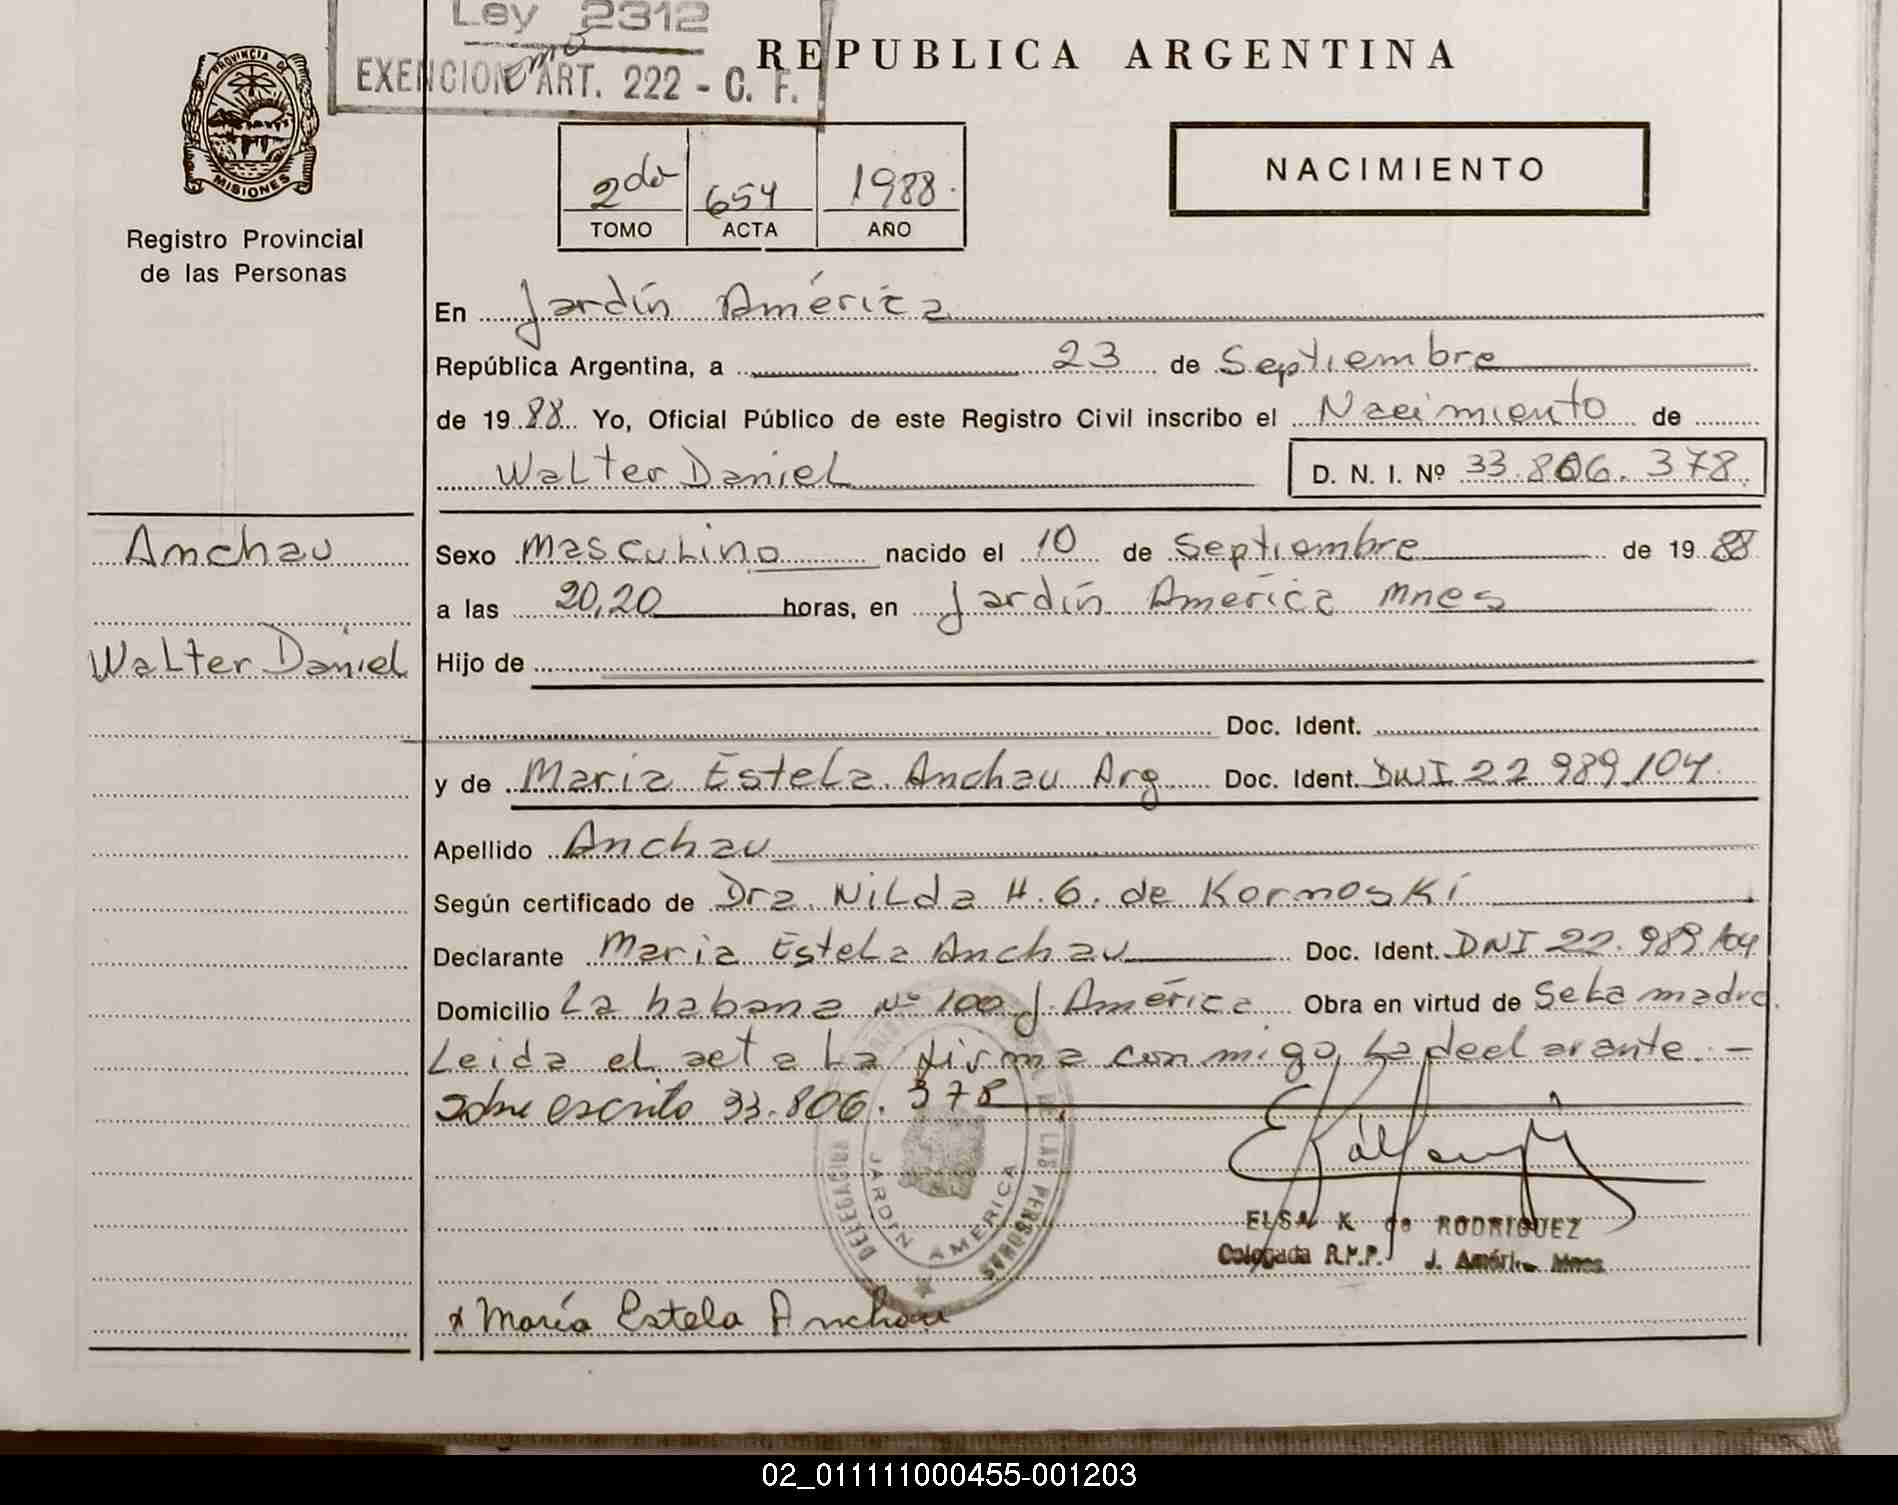 Ley 2312
EXENCION ART. 222 - C. F.
REPUBLICA ARGENTINA
PROVINCIA DE
MISIONES
Registro Provincial
de las Personas
2do 654 1988.
TOMO ACTA AÑO
NACIMIENTO
En Jardín América
República Argentina, a 23 de Septiembre
de 1988 Yo, Oficial Público de este Registro Civil inscribo el Nacimiento de
Walter Daniel D. N. I. Nº 33.806.378.
Anchau
Walter Daniel
Sexo Masculino nacido el 10 de Septiembre de 1988
a las 20,20 horas, en Jardín América Mnes
Hijo de
Doc. Ident.
y de Maria Estela Anchau Arg Doc. Ident. DNI 22 989.104.
Apellido Anchau
Según certificado de Dra. Nilda H. G. de Kornoski
Declarante Maria Estela Anchau Doc. Ident. DNI 22.989.104
Domicilio La habana Nº 100 J. América Obra en virtud de Se La madre.
Leida el acta La firma conmigo, La declarante. -
sobre escrito 33.806.378
DELEGACION DE LAS PERSONAS
JARDIN AMERICA
ELSA K de RODRIGUEZ
R.P.P. J. América Mnes
x María Estela Anchau
02_011111000455-001203